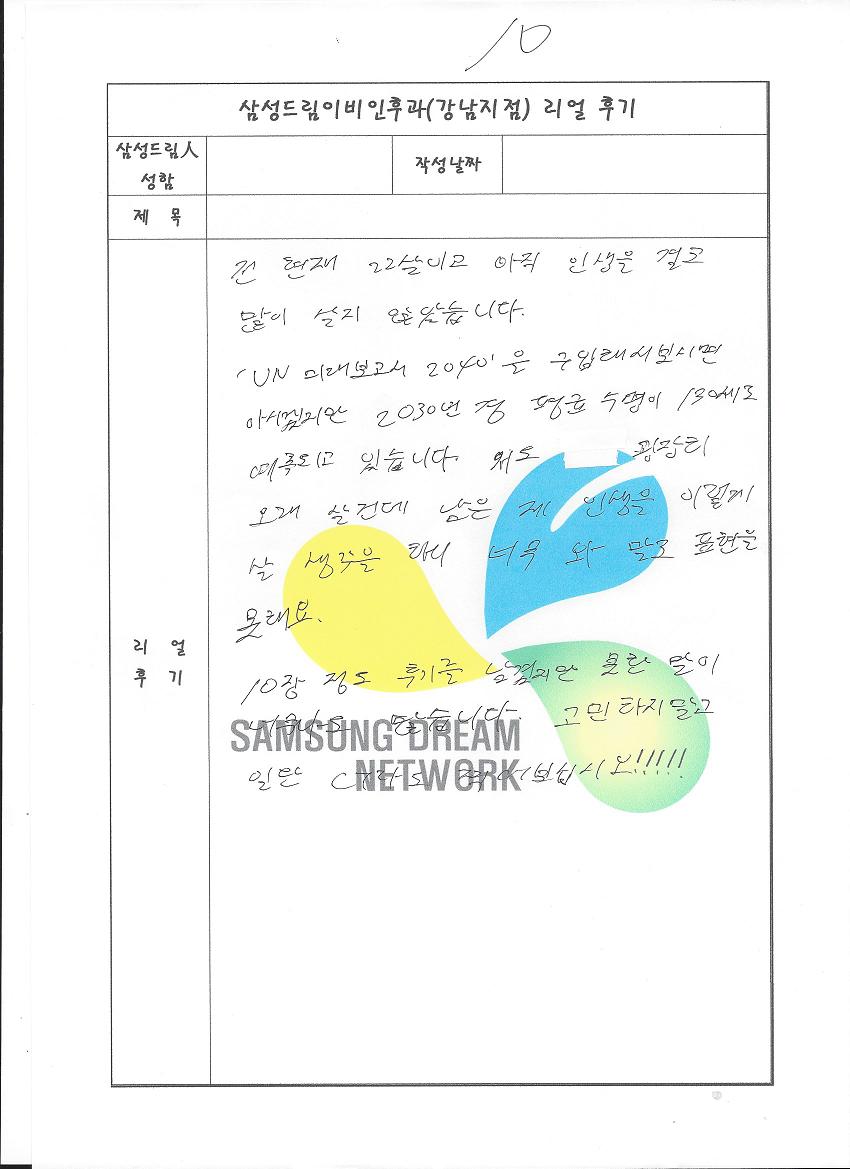 10
삼성드림이비인후과(강남지점) 리얼 후기
삼성드림人
성함
작성날짜
제 목
전 현재 22살이고 아직 인생을 결코
많이 살지 않았습니다.
'UN 미래보고서 2040'은 구입해서보시면
아시겠지만 2030년 경 평균 수명이 130세로
예측되고 있습니다. 저도 굉장히
오래 살건데 남은 제 인생을 이렇게
살 생각을 하니 너무 와 말로 표현을
못해요.
리 얼
후 기
10장 정도 후기를 남겼지만 못한 말이
너무나도 많습니다. 고민하지말고
SAMSUNG DREAM
NETWORK
일단 CT라도 찍어보십시오!!!!!